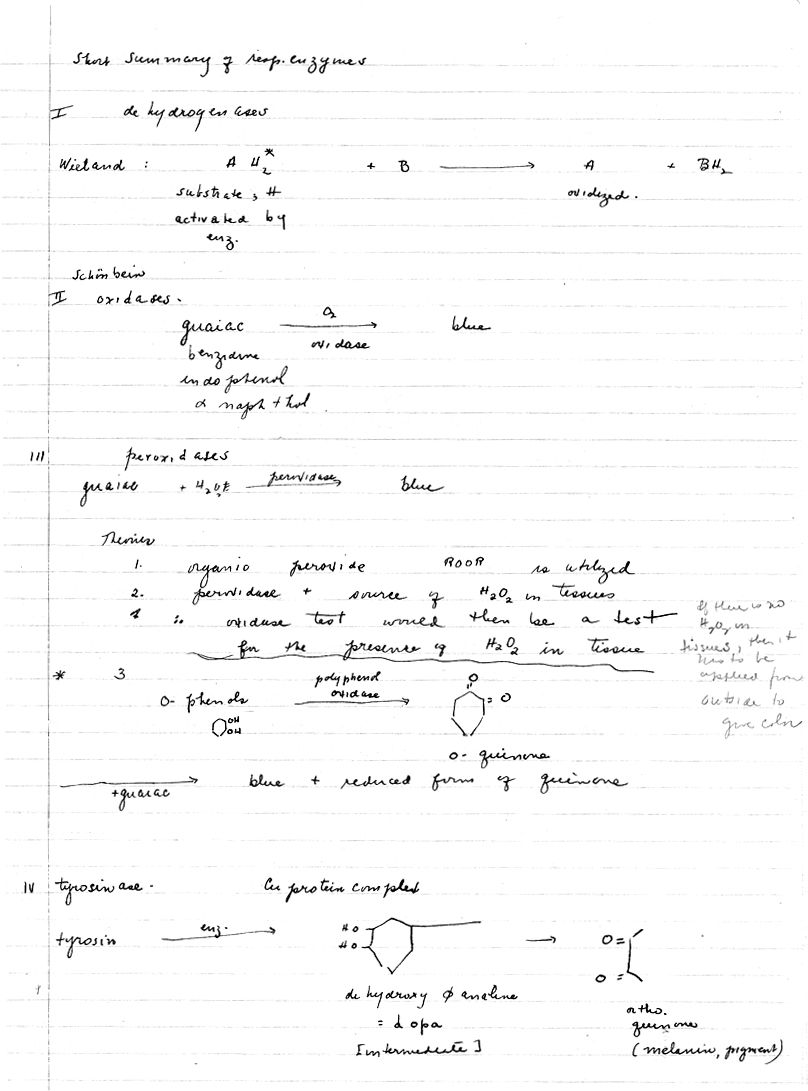 Short Summary of resp. enzymes
I dehydrogenases
Wieland : A H2* + B → A + BH2
substrate, H oxidized.
activated by
enz.
Schönbein
II oxidases.
O2
guaiac → blue
oxidase
benzidine
indophenol
α naphthol
III peroxidases
guaiac + H2O2 peroxidase → blue
Theories
1. organic peroxide ROOR is utilized
2. peroxidase + source of H2O2 in tissues
∴ oxidase test would then be a test
for the presence of H2O2 in tissue
If there is no
H2O2 in
tissues, then it
has to be
applied from
outside to
give color
* 3
O- phenols polyphenol oxidase → O O
OH
OH
O- quinone
→ +guaiac blue + reduced form of quinone
IV tyrosinase. Cu protein complex
tyrosin enz. → HO HO → O= O=
dehydroxy φ analine
= dopa
[intermediate]
ortho.
quinone
(melanin, pigment)